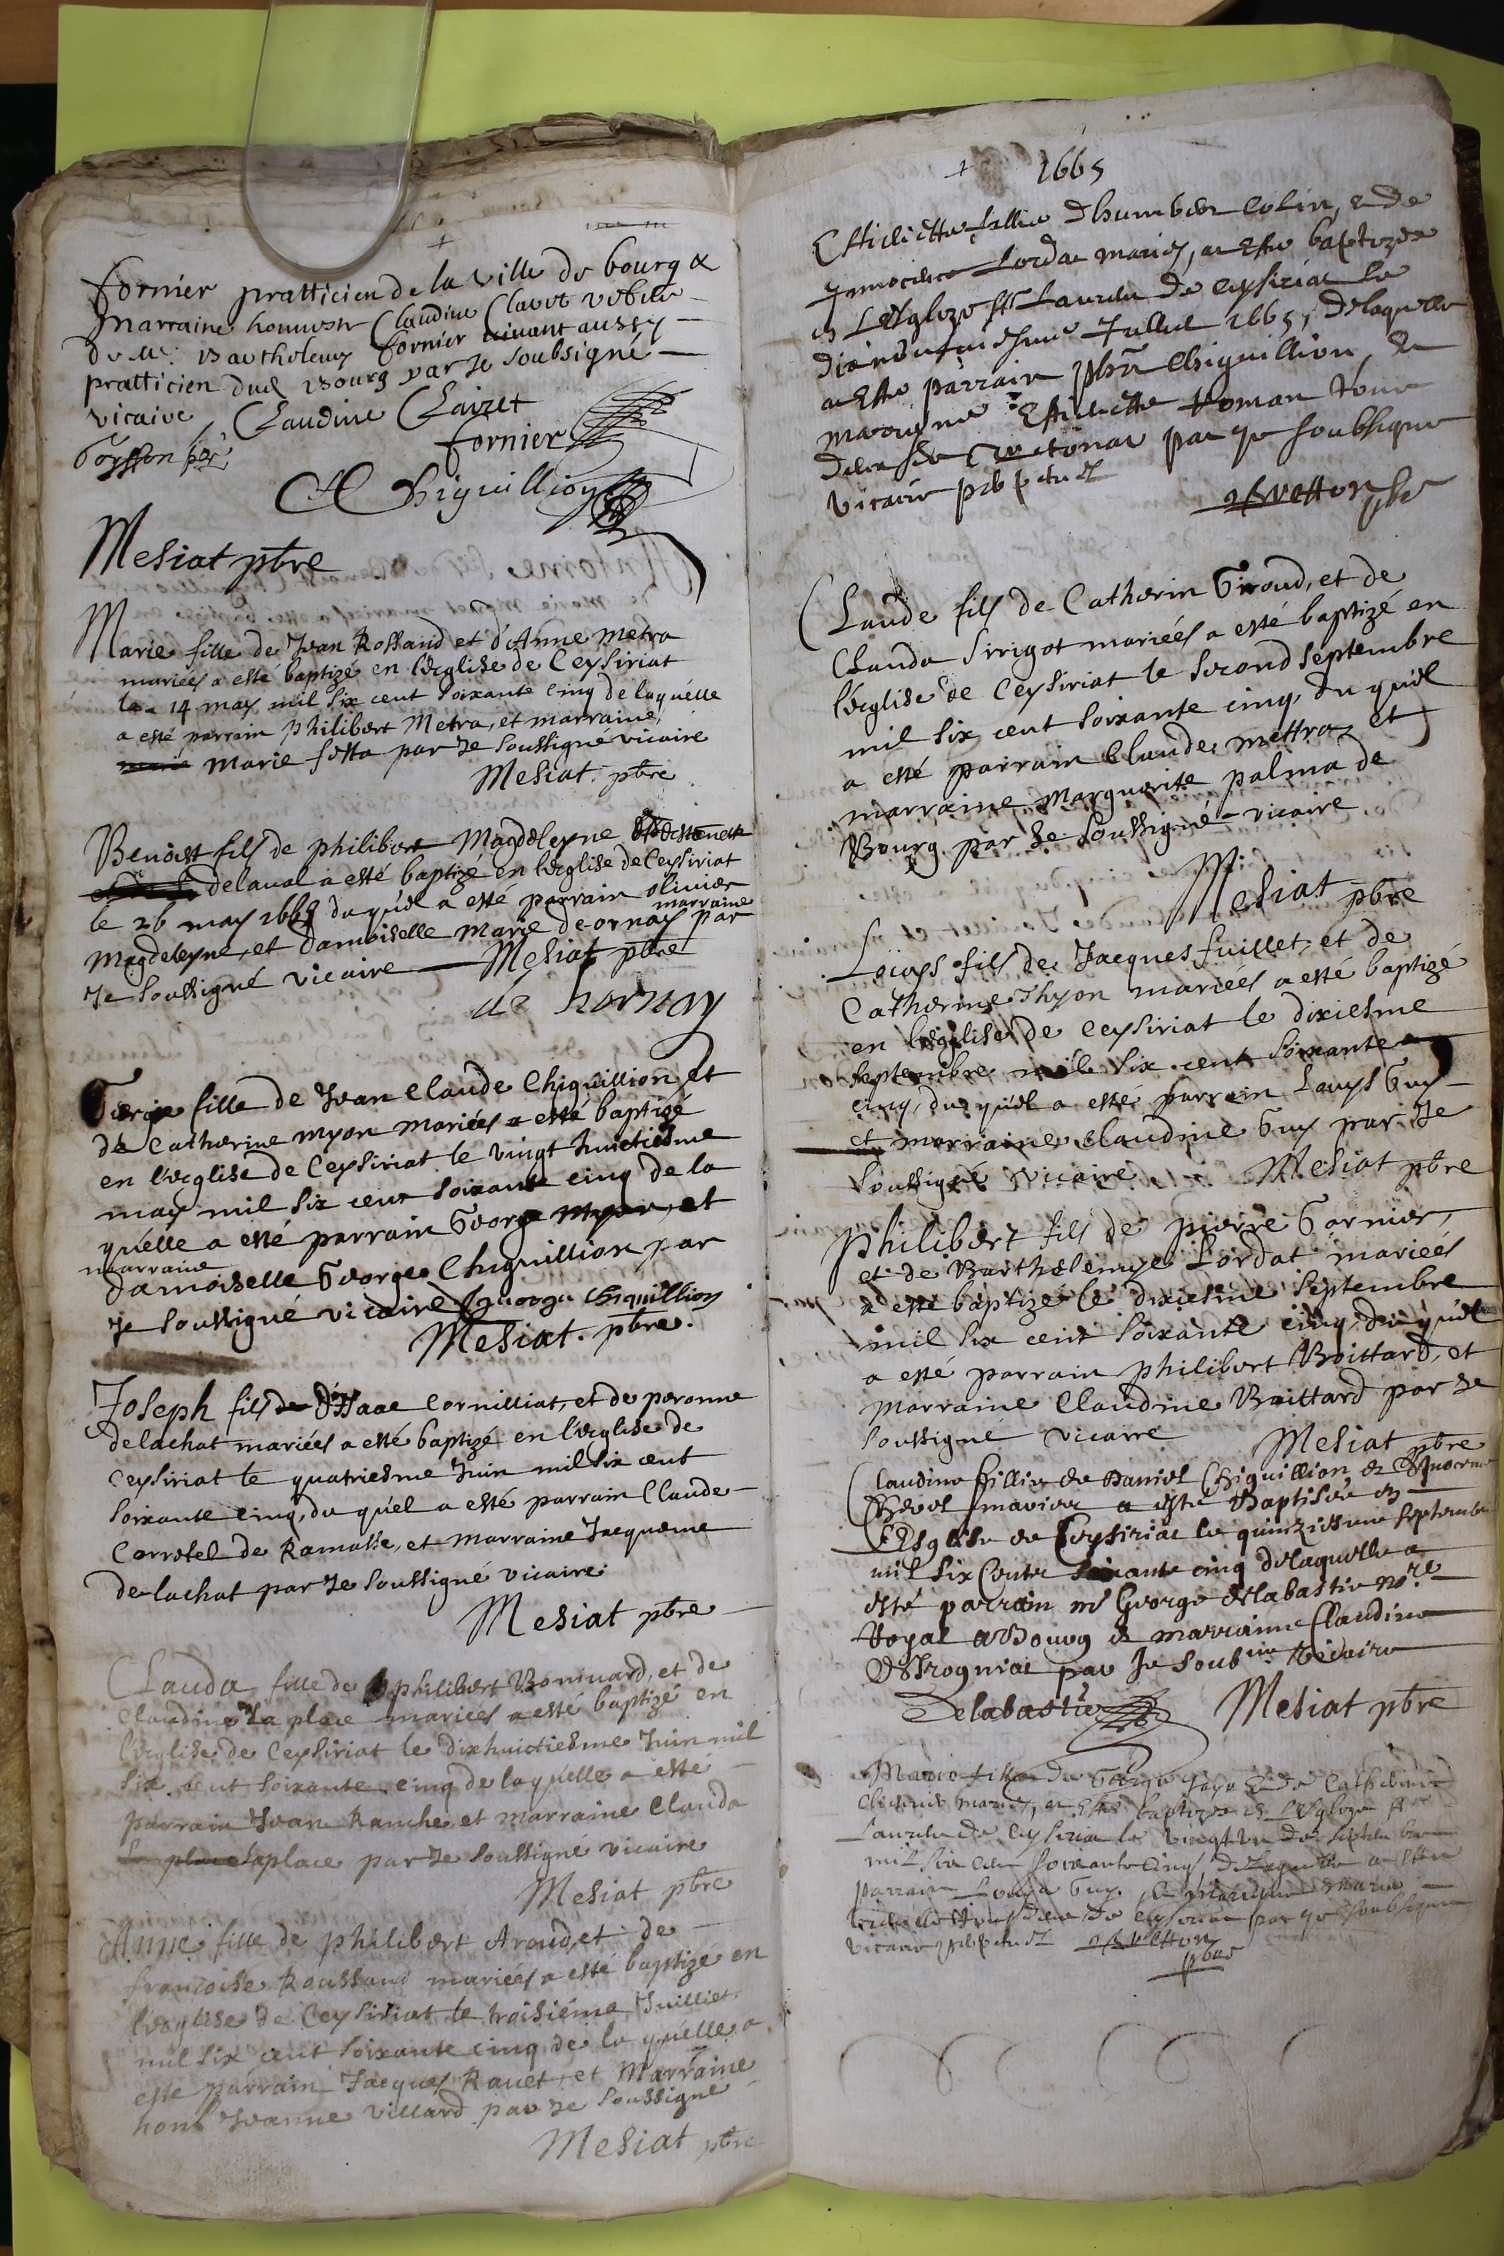 fornier pratticien de la ville de bourg &
marraine honneste Claudine Clavet vefve
de Me Bartholemy fornier vivant aussy
pratticien dud Bourg par Je soubsigné
vicaire Claudine Clairet
fornier
Chiquillion
Mesiat pbre
Marie fille de Jean Rossand et d'Anne Metra
mariées a esté baptizé en l'eglise de Ceysiriat
le 14 may mil six cent soixante cinq de laquelle
a esté parrain Philibert Metra, et marraine
marie par Je soussigné vicaire
Mesiat. pbre
Benoist fils de philibert Magdeleyne
delaual a esté baptizé en l'eglise de Ceysiriat
le 26 may 1665 du quel a esté parrain olivier
Magdeleyne, et damoiselle marie deornay marraine par
Je soussigné vicaire Mesiat pbre
de hornay
George fille de Jean Claude Chiquillion et
de Catherine myon mariées a esté baptizé
en l'eglise de Ceysiriat le vingt huictiesme
may mil six cent soixante cinq de la
quelle a esté parrain George myon, et
marraine
damoiselle George Chiquillion par
Je soussigné vicaire George Chiquillion
Mesiat. pbre.
Joseph fils de d'Isaac Cornilliat, et de peronne
delachat mariées a esté baptizé en l'eglise de
Ceysiriat le quatriesme Juin mil six cent
soixante cinq, du quel a esté parrain Claude
Corrotel de Ramasse, et marraine Jaqueme
delachat par Je soussigné vicaire.
Mesiat pbre
Clauda fille de philibert Boniuard, et de
Claudine La place mariées a esté baptizé en
l'eglise de Ceysiriat le dixhuictiesme Juin mil
six cent soixante cinq de laquelle a esté
parrain Jean Ranche et marraine Clauda
La place Laplace par Je soussigné vicaire
Mesiat pbre
Anne fille de philibert Aroud, et de
francoise Roussand mariées a esté baptizé en
l'eglise de Ceysiriat le troisiéme Juilliet
mil six cent soixante cinq de la quelle a
esté parrain Jacques Rauet et Marraine
hon Jeanne Villard par Je soussigné
Mesiat pbre
1665
fillie dhumber Colin, & de
Innocence Lordat mariés, a Este baptizée
en Lesglize St Laurens de ceysiriat le
Juillet 1665, delaquelle
a Este parrain Chiquillion, &
maraine
par Je soubsigné
vicaire perpetuel
pbre
Claude fils de Catherin Giroud, et de
Clauda Sirigot mariées a esté baptizé en
l'eglise de Ceysiriat le second Septembre
mil six cent soixante cinq, du quel
a esté parrain Claude mettraz et
marraine Marguerite palma de
Bourg par Je soussigné vicaire
Mesiat pbre
Loüys fils de Jacques fuillet, et de
Catherine Thyon mariées a esté baptizé
en l'eglise de Ceysiriat le dixiesme
septembre mil six cent soixante
cinq, du quel a esté parrain Louys Guy
et marraine Claudine Guy par Je
soussigné vicaire Mesiat pbre
Philibert fils de pierre Garnier,
et de Barthelemye Lordat mariées
a esté baptizé le dixiesme Septembre
mil six cent soixante cinq, du quel
a esté parrain philibert Boittard, et
marraine Claudine Boittard par Je
soussigné vicaire Mesiat pbre
Claudine fillie de Daniel Chiquillion & Innocence
mariées a esté Baptisée en
l'Esglise de Ceysiriat le quinziesme Septembre
mil six Cents soixante cinq delaquelle a
esté parrain me George delabastie nore
Royal a Bourg & marraine Claudine
par Je soubné Vicaire
Delabastie Mesiat pbre
Marie fille de & de Catherine
mariés, a Este baptizée en Lesglize St
Laurens de ceysiria le vingt un de septembre
mil six cens soixante cinq, delaquelle a Este
parrain Louys Guy, & maraine marie
de ceysiria par Je soubsigné
vicaire perpetuel
pbre